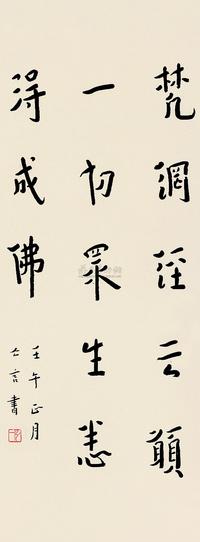 梵網經云願
一切眾生悉
得成佛
壬午正月
言書